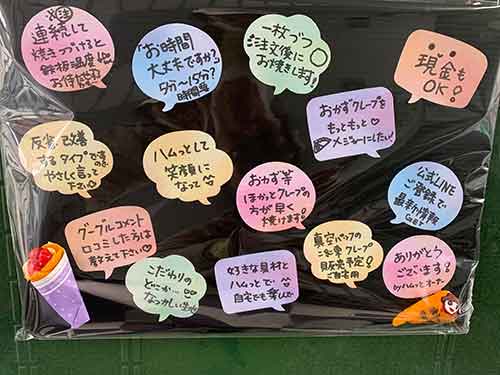 連続して
焼きつづけると
鉄板温度
お待ち
お時間
大丈夫ですか?
5分〜15分?
時間
一枚づつ
ご注文後に
お焼きします!
現金も
OK!
おかずクレープを
もっともっと
メジャーにしたい!
反省・改善
するタイプですので
やさしく言って
下さい
ハムっとして
笑顔に
なって
おかず等
ほかっとクレープの
方が早く
焼けます!
公式LINE
ご登録で
最新情報
GET
グーグルコメント
口コミした方は
教えて下さい
こだわりの
どこか…
なつかしい生地
好きな具材と
ハムっとで
自宅でも楽しんで
真空パックの
クレープ
販売予定!
ご自宅用
ありがとう
ございます!
byハムっとオーナー